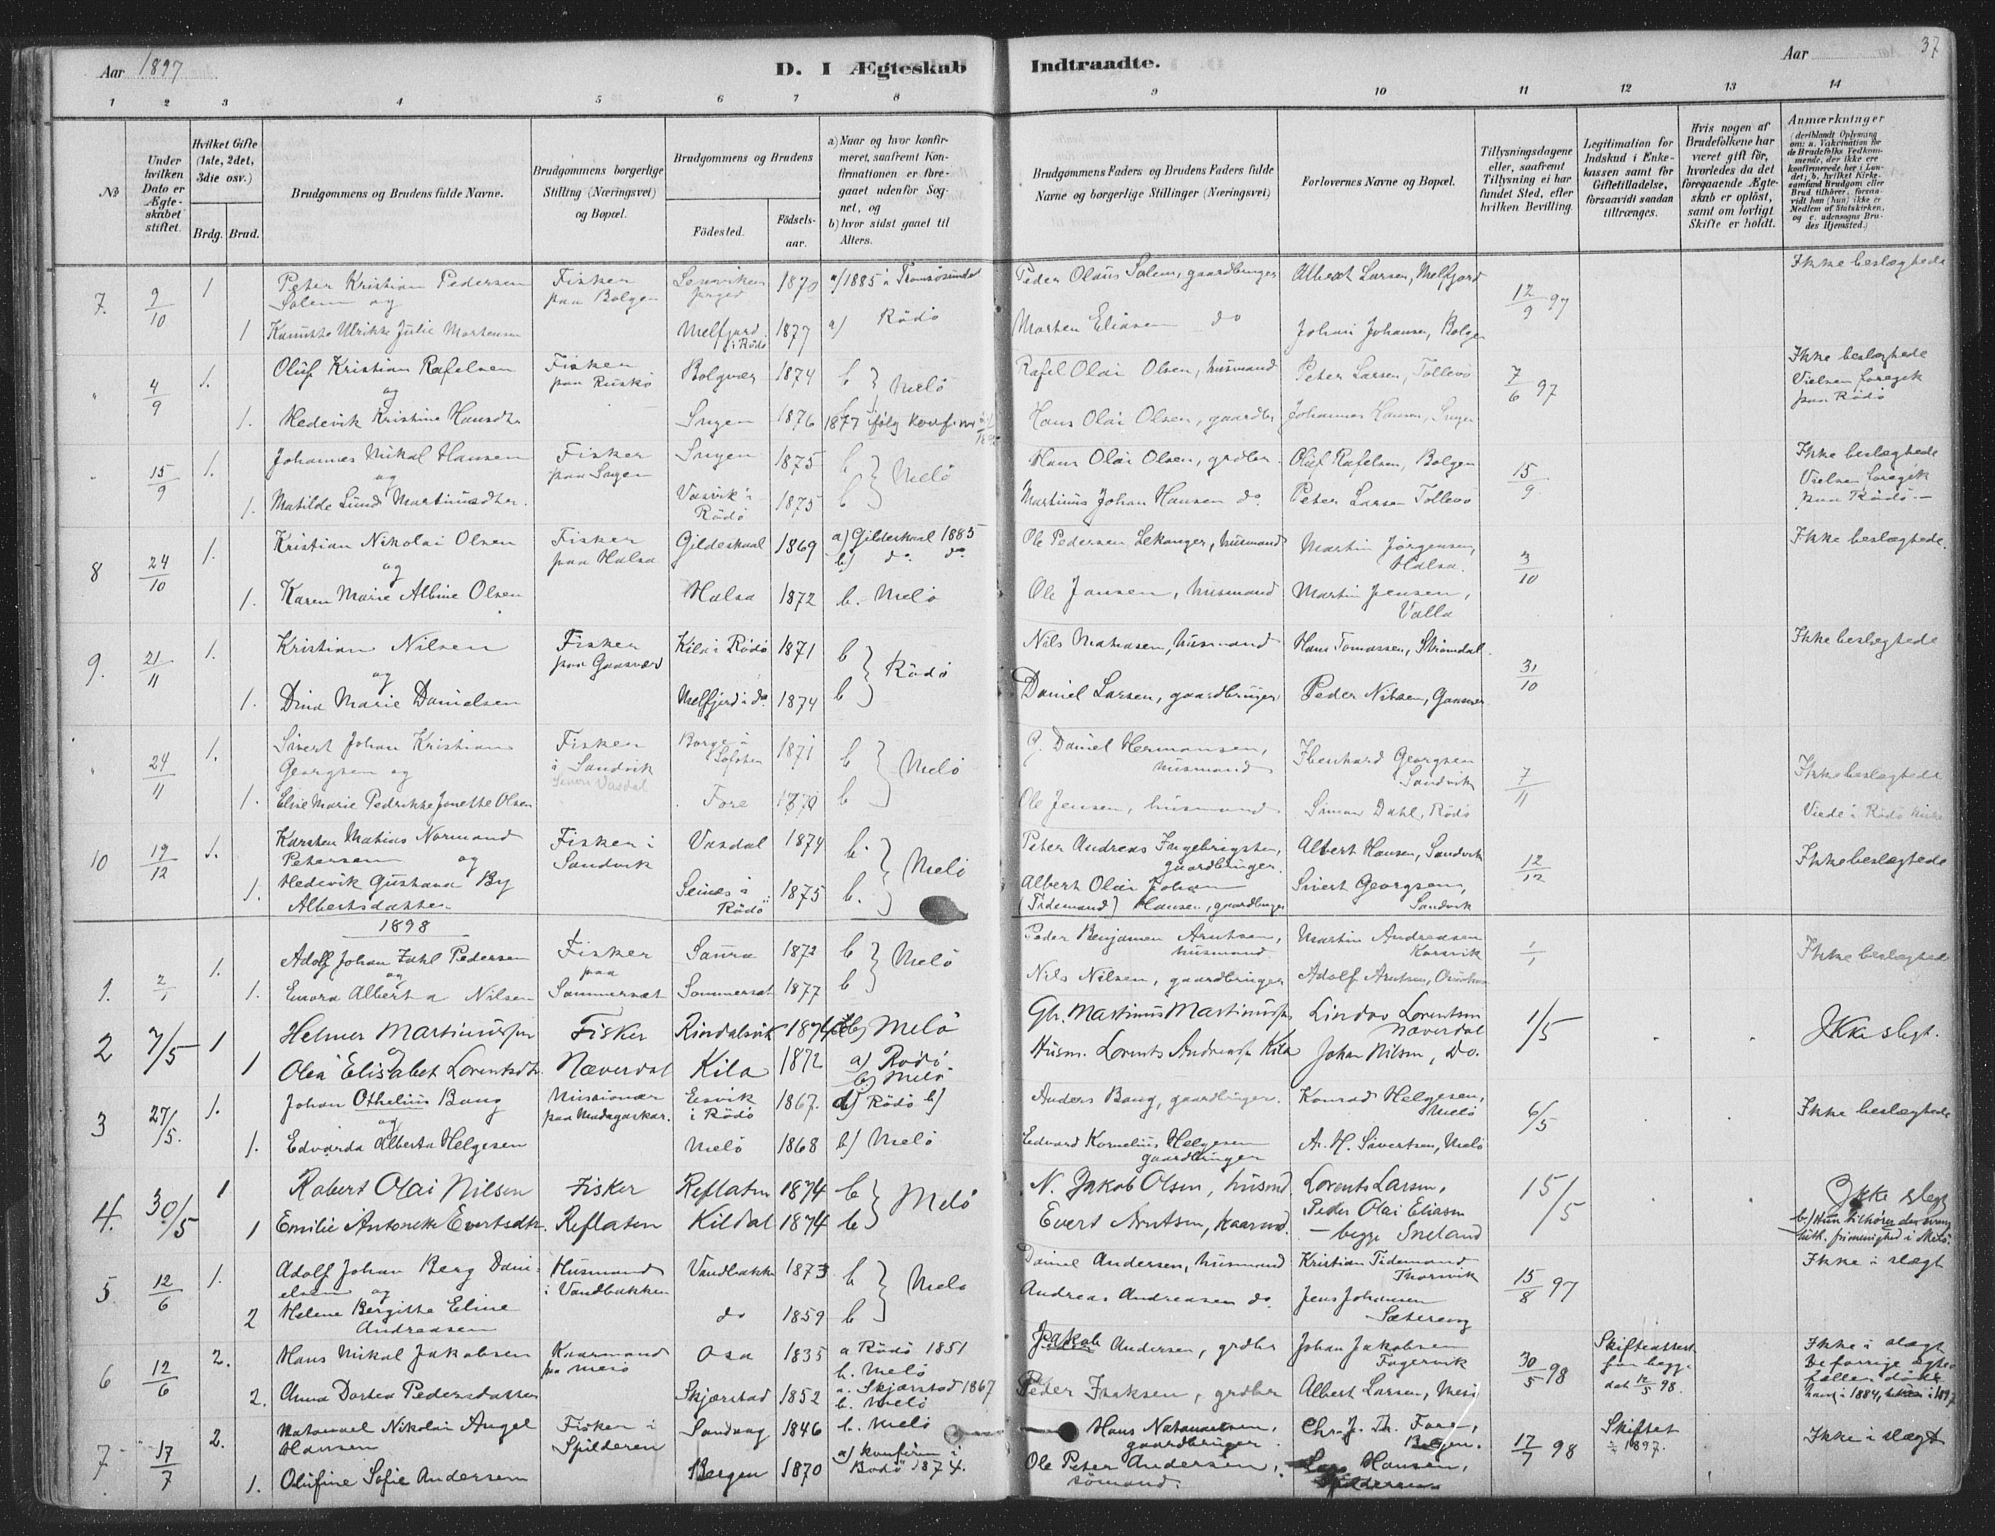 Aar 1897
D. I Ægteskab Indtraadte.
Aar
37
1 2 3 4 5 6 7 8 9 10 11 12 13 14
No
Under hvilken Dato er Ægteskabet stiftet.
Hvilket Gifte (1ste, 2det, 3die osv.)
Brdg. Brud.
Brudgommens og Brudens fulde Navne.
Brudgommens borgerlige Stilling (Næringsvei) og Bopæl.
Brudgommens og Brudens
Födested.
Födsels-aar.
a) Naar og hvor konfirmeret, saafremt Konfirmationen er foregaaet udenfor Sognet, og
b) hvor sidst gaaet til Alters.
Brudgommens Faders og Brudens Faders fulde Navne og borgerlige Stillinger (Næringsvei)
Forlovernes Navne og Bopæl.
Tillysningsdagene eller, saafremt Tillysning ei har fundet Sted, efter hvilken Bevilling.
Legitimation for Indskud i Enkekassen samt for Giftetilladelse, forsaavidt saadan tiltrænges.
Hvis nogen af Brudefolkene har været gift för, hvorledes da det foregaaende Ægteskab er oplöst, samt om lovligt Skifte er holdt.
Anmærkninger (deriblandt Oplysning om: a. Vakcination for de Brudefolks Vedkommende, der ikke ere konfirmerede her i Landet; b. hvilket Kirkesamfund Brudgom eller Brud tilhörer, forsaavidt han (hun) ikke er Medlem af Statskirken, og c. udensogns Brudes Hjemsted.)
7. 9/10 1 Peter Kristian Pedersen Solem og Fisker paa Bolgen 1870 a/ 1885 i Tromsösundet Peder Olaus Solem, gaardbruger Albert Larsen, Melfjord 12/9 97 Ikke beslægtede
1 Ulrikke Julie Mortensen Melfjord i Rödö 1877 a) Rödö Morten Eliasen do Johan Johansen, Bolgen
" 4/9 1. Oluf Kristian Rafelsen og Fisker paa Ruskö Bolgvær 1874 b Melö Rafel Olai Olsen, husmand Peter Larsen, Tollevö 7/6 97 Ikke beslægtede Vielsen foregik paa Rödö
1. Hedevik Kristine Hansdtr Sugen 1876 b Hans Olai Olsen, gaardbr Johannes Hansen, Sugen
" 15/9 1. Johannes Mikal Hansen og Fisker paa Sugen Sugen 1875 b Melö Hans Olai Olsen, grdbr. Oluf Rafelsen, Bolgen 15/9 Ikke beslægtede Vielsen foregik paa Rödö.
1. Matilde Lund Martinusdtr. Vasvik i Rödö 1875 b Martinus Johan Hansen do. Peter Larsen Tollevö
8 24/10 1. Kristian Nikolai Olsen og Fisker paa Halsa Gildeskaal 1869 a) Gildeskaal 1885 b) do. do Ole Pedersen Lekanger, husmand Martin Jörgensen, Halsa. 3/10 Ikke beslægtede.
1. Karen Marie Albine Olsen Halsa 1872 b. Melö Ole Jansen, husmand Martin Jensen, Valla
9. 21/11 1. Kristian Nilsen og Fisker paa Gaasvær Kila i Rödö 1871 b Rödö Nils Matiasen, husmand Hans Tomassen, Strömdal. 31/10 Ikke beslægtede
1. Dina Marie Danielsen Melfjord i do. 1874 b Daniel Larsen, gaardbruger Peder Nilsen, Gaasvær
" 24/11 1. Sivert Johan Kristian Georgsen og Fisker i Sandvik Borge i Lofoten 1871 b Melö G. Daniel Hermansen, husmand Ebenhard Georgsen Sandvik 7/11 Ikke beslægtede Viede i Rödö kirke
1. Elise Marie Pedrikke Jonette Olsen Fore 1870 b Ole Jensen, husmand Simon Dahl, Rödö
10 19/12 1. Karsten Matias Normand Petersen og Fisker i Sandvik Vasdal 1874 b. Melö Peter Andreas Ingebrigtsen, gaardbruger. Albert Hansen, Sandvik 12/12 Ikke beslægtede
1. Hedevik Gustava By Albertsdatter Seines i Rödö 1875 b. Albert Olai Johan (Tidemand) Hansen, gaardbruger Sivert Georgsen, Sandvik
1898
1. 2/1 1. Adolf Johan Zahl Pedersen og Fisker paa Sommersæt Saura 1872 b Melö Peder Benjamen Arntsen, husmand Martin Andreasen Korsvik 1/1 Ikke beslægtede
1. Emora Alberta Nilsen Sommersæt 1877 b Nils Nilsen, gaardbruger Adolf Arntsen,
2 7/5 1 Helmer Martinussen og Fisker Rindalsvik 1874 b) Melö Gbr. Martinus Martinussen Lindor Lorentsen Næverdal 1/5 Ikke slegt.
1 Olea Elisabet Lorentsdtr. Næverdal Kila 1872 a) Rödö. b) Melö. Husm. Lorents Andreassen Kila Johan Nilsen, Do.
3 27/5. 1. Johan Othelius Bang og Missionær paa Madagaskar. Esvik i Rödö 1867. a) Rödö b) Anders Bang, gaardbruger. Konrad Helgesen, Melö 6/5 Ikke beslægtede
1. Edvarda Alberta Helgesen Melö 1868 b) Melö Edvard Kornelius Helgesen gaardbruger A. H. Sivertsen, Melö
4. 30/5 1 Robert Olai Nilsen Fisker Reflaten 1874 b Melö N. Jakob Olsen, husmd. Lorents Larsen, 15/5 Ikke slegt
1 Emilie Antonette Evertsdtr. Reflaten Kildal 1874 b Evert Arntsen, kaarmd. Peder Olai Eliasen - begge Sneland b/ Hun tilhörer den evang. luth. frimenighed i Melö.
5. 12/6 1. Adolf Johan Berg Danielsen og Husmand i Vandbakken Vandbakken 1873 b Melö Daniel Andersen, husmand Kristian Tidemand Thorsvik 15/8 97 Ikke i slægt
2 Helene Bergitte Eline Andreasen do 1859 b Andreas Andreasen do. Jens Johansen Sætervog
6 12/6 2. Hans Mikal Jakobsen Kaarmand paa Mesö Osa 1835 a Rödö 1851 b. Melö Jakob Andersen, grdbr Johan Jakobsen Fagervik 30/5 98 Skifteattest for begge dat 12/5 98. Ikke i slægt
2. Anna Dortea Pedersdatter Skjærstad 1852 a. Skjærstad 1867 b. Melö Peder Isaksen, grdbr Albert Larsen, Mesö
7 17/7 2. Natanael Nikolai Angel Hansen Fisker i Spilderen Sandvag 1846 b. Melö Hans Natanaelsen, gaardbruger. Chr. J. Th. Fore, 17/7 98 Skiftet 1897. Ikke i slægt
1. Olufine Sofie Andersen Bergen 1870 a) konfirm i Bodö 1874. Ole Peter Andersen, sömand. Hansen,